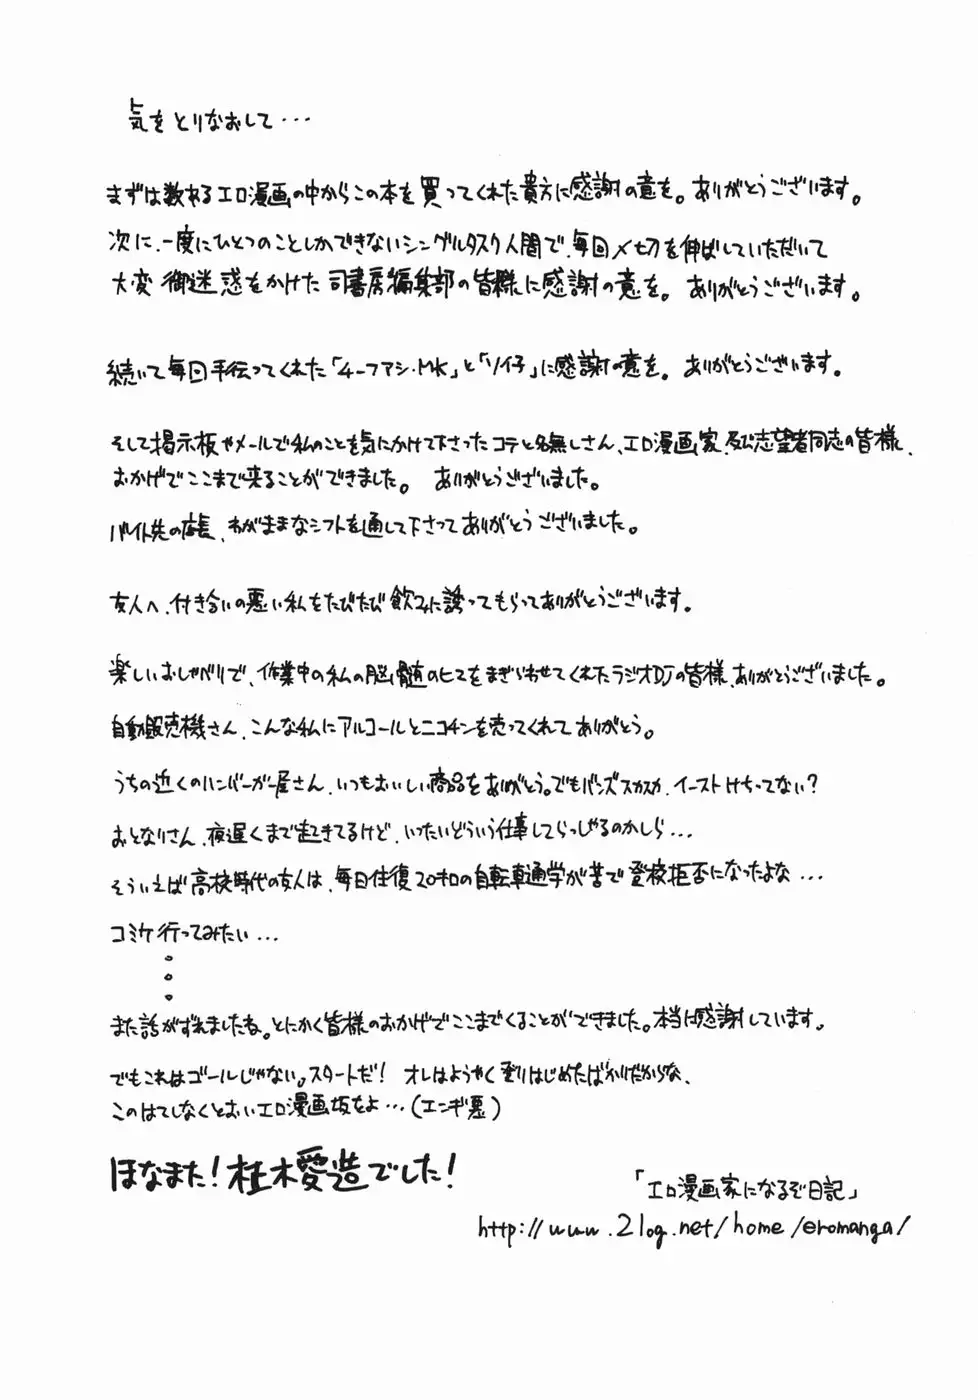 気をとりなおして・・・
まずは数あるエロ漫画の中からこの本を買ってくれた貴方に感謝の意を。ありがとうございます。
次に、一度にひとつのことしかできないシングルタスク人間で、毎回〆切を伸ばしていただいて
大変御迷惑をかけた司書房編集部の皆様に感謝の意を。ありがとうございます。
続いて毎回手伝ってくれた「4-ファシ・MK」と「ソイ子」に感謝の意を。ありがとうございます。
そして掲示板やメールで私のことを気にかけて下さったコテと名無しさん、エロ漫画家、及び志望者同志の皆様、
おかげでここまで来ることができました。ありがとうございました。
バイト先の店長、わがままなシフトを通して下さってありがとうございました。
友人へ、付き合いの悪い私をたびたび飲みに誘ってもらってありがとうございます。
楽しいおしゃべりで、作業中の私の脳髄のヒマをまぎらわせてくれたラジオDJの皆様、ありがとうございました。
自動販売機さん、こんな私にアルコールとニコチンを売ってくれてありがとう。
うちの近くのハンバーガー屋さん、いつもおいしい商品をありがとう。でもバンズスカスカ、イーストけちってない？
おとなりさん、夜遅くまで起きてるけど、いったいどういう仕事してらっしゃるのかしら・・・
そういえば高校時代の友人は、毎日往復20キロの自転車通学が苦で登校拒否になったよな・・・
コミケ行ってみたい・・・
。
。
。
また話がずれましたね。とにかく皆様のおかげでここまでくることができました。本当に感謝しています。
でもこれはゴールじゃない。スタートだ！ オレはようやく登りはじめたばかりだからな、
このはてしなくとおいエロ漫画坂をよ・・・（エンギ悪）
ほなまた！桂木愛造でした！
「エロ漫画家になるぞ日記」
http://www.2log.net/home/eromanga/